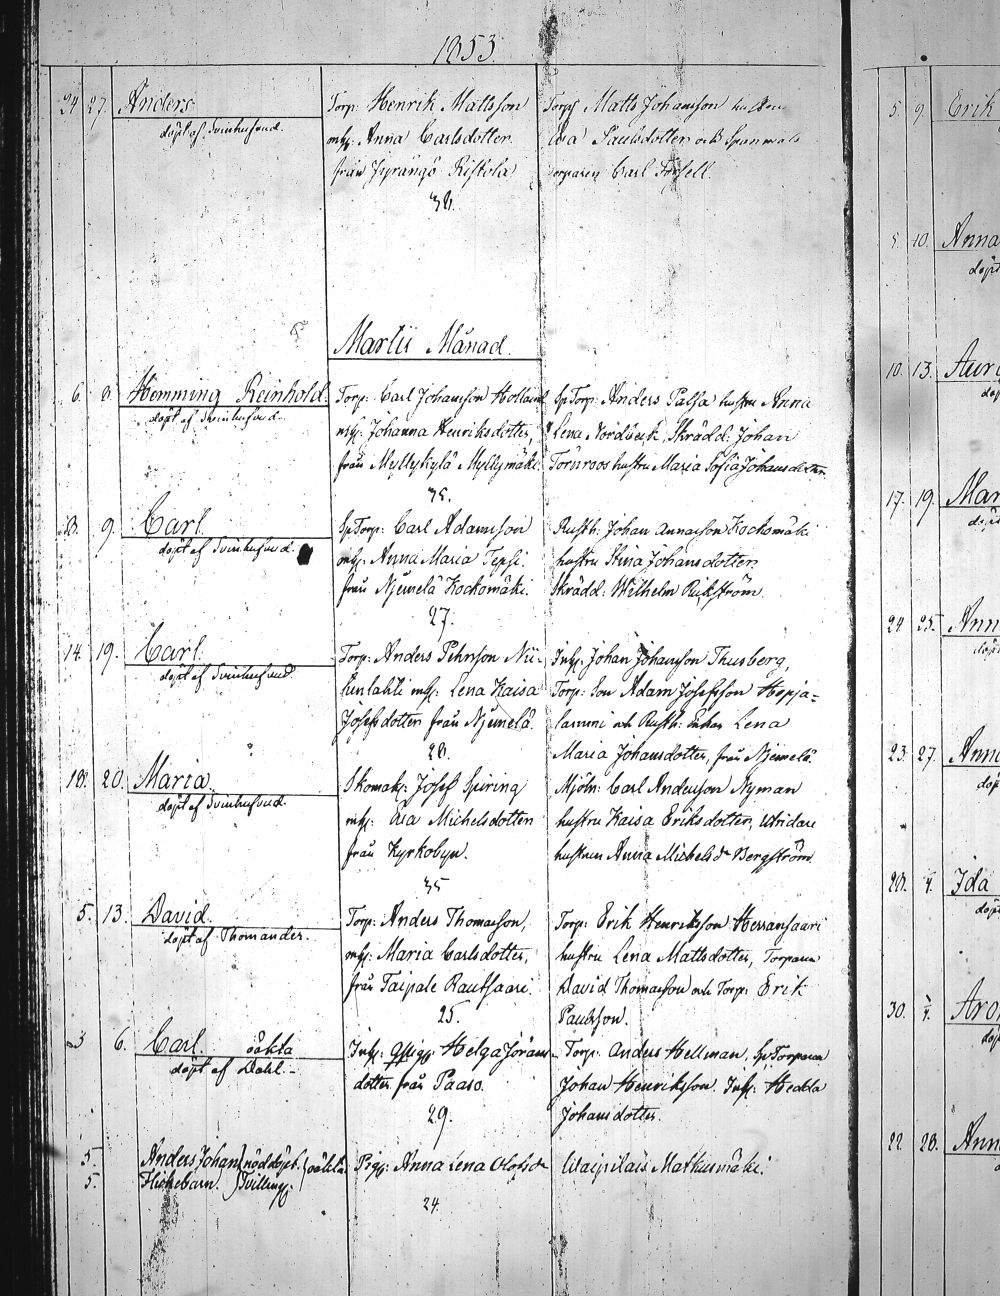 1853.
24 27. Anders
döpt af Svinhufvud.
Torp: Henrik Mattsson
mh: Anna Carlsdotter
från Jyrängö Ristola
38.
Torp: Matts Johansson hustru
Eva Paulsdotter och Spanmåls
torparen Carl Forsell.
Martii Månad.
6. 8. Hemming Reinhold.
döpt af Svinhufvud.
Torp: Carl Johansson Hollund
mh: Johanna Henriksdotter,
från Myllykylä Myllymäki.
35.
SpTorp: Anders Palsa hustru Anna
Lena Nordbeck, Skrädd: Johan
Törnroos hustru Maria Sofia Johansdotter
8. 9. Carl.
döpt af Svinhufvud.
SpTorp: Carl Adamsson
mh: Anna Maria
från Niemelä Kockomäki.
27.
Rusth: Johan Annasson Kockomäki
hustru Stina Johansdotter
Skrädd: Wilhelm Rikström
14. 19. Carl.
döpt af Svinhufvud.
Torp: Anders Pehrsson Nii-
lunlahti mh: Lena Kaisa
Josefsdotter från Niemelä.
28.
Inh: Johan Johansson Thusberg,
Torp: Son Adam Josefsson Hepja-
lammi och Rusth: Enkan Lena
Maria Johansdotter, från Niemelä.
18. 20. Maria.
döpt af Svinhufvud.
Skomak: Josef Spiring
mh: Eva Michelsdotter
från Kyrkobyn.
35
Mjöln: Carl Andersson Nyman
hustru Kaisa Eriksdotter, Utridare
hustrun Anna Michelsdr Bergström
5. 13. David.
döpt af Thomander.
Torp: Anders Thomasson,
mh: Maria Carlsdotter,
från Taipale Rautsaari.
25.
Torp: Erik Henriksson Herransaari
hustru Lena Mattsdotter, Torparen
David Thomasson och Torp: Erik
Paulsson.
3 6. Carl. oäkta
döpt af Dahl.
Inh: Helga Jörans-
dotter från Paaso.
29.
Torp: Anders Hellman, SpTorparen
Johan Henriksson. Inh: Hedda
Johansdotter.
5. Anders Johan nöddöpt. oäkta
5. Flickebarn. Tvilling:
Pig: Anna Lena Olofsdr
24.
Matkusmäki.
5. 9. Erik
5. 10. Anna
döpt
10. 13. Auro
döpt
17. 19. Mar
döpt
24. 25. Ann
döpt
23. 27. Anna
döp
28. Ida
döpt
30. Aro
döp
22. 28. Ann